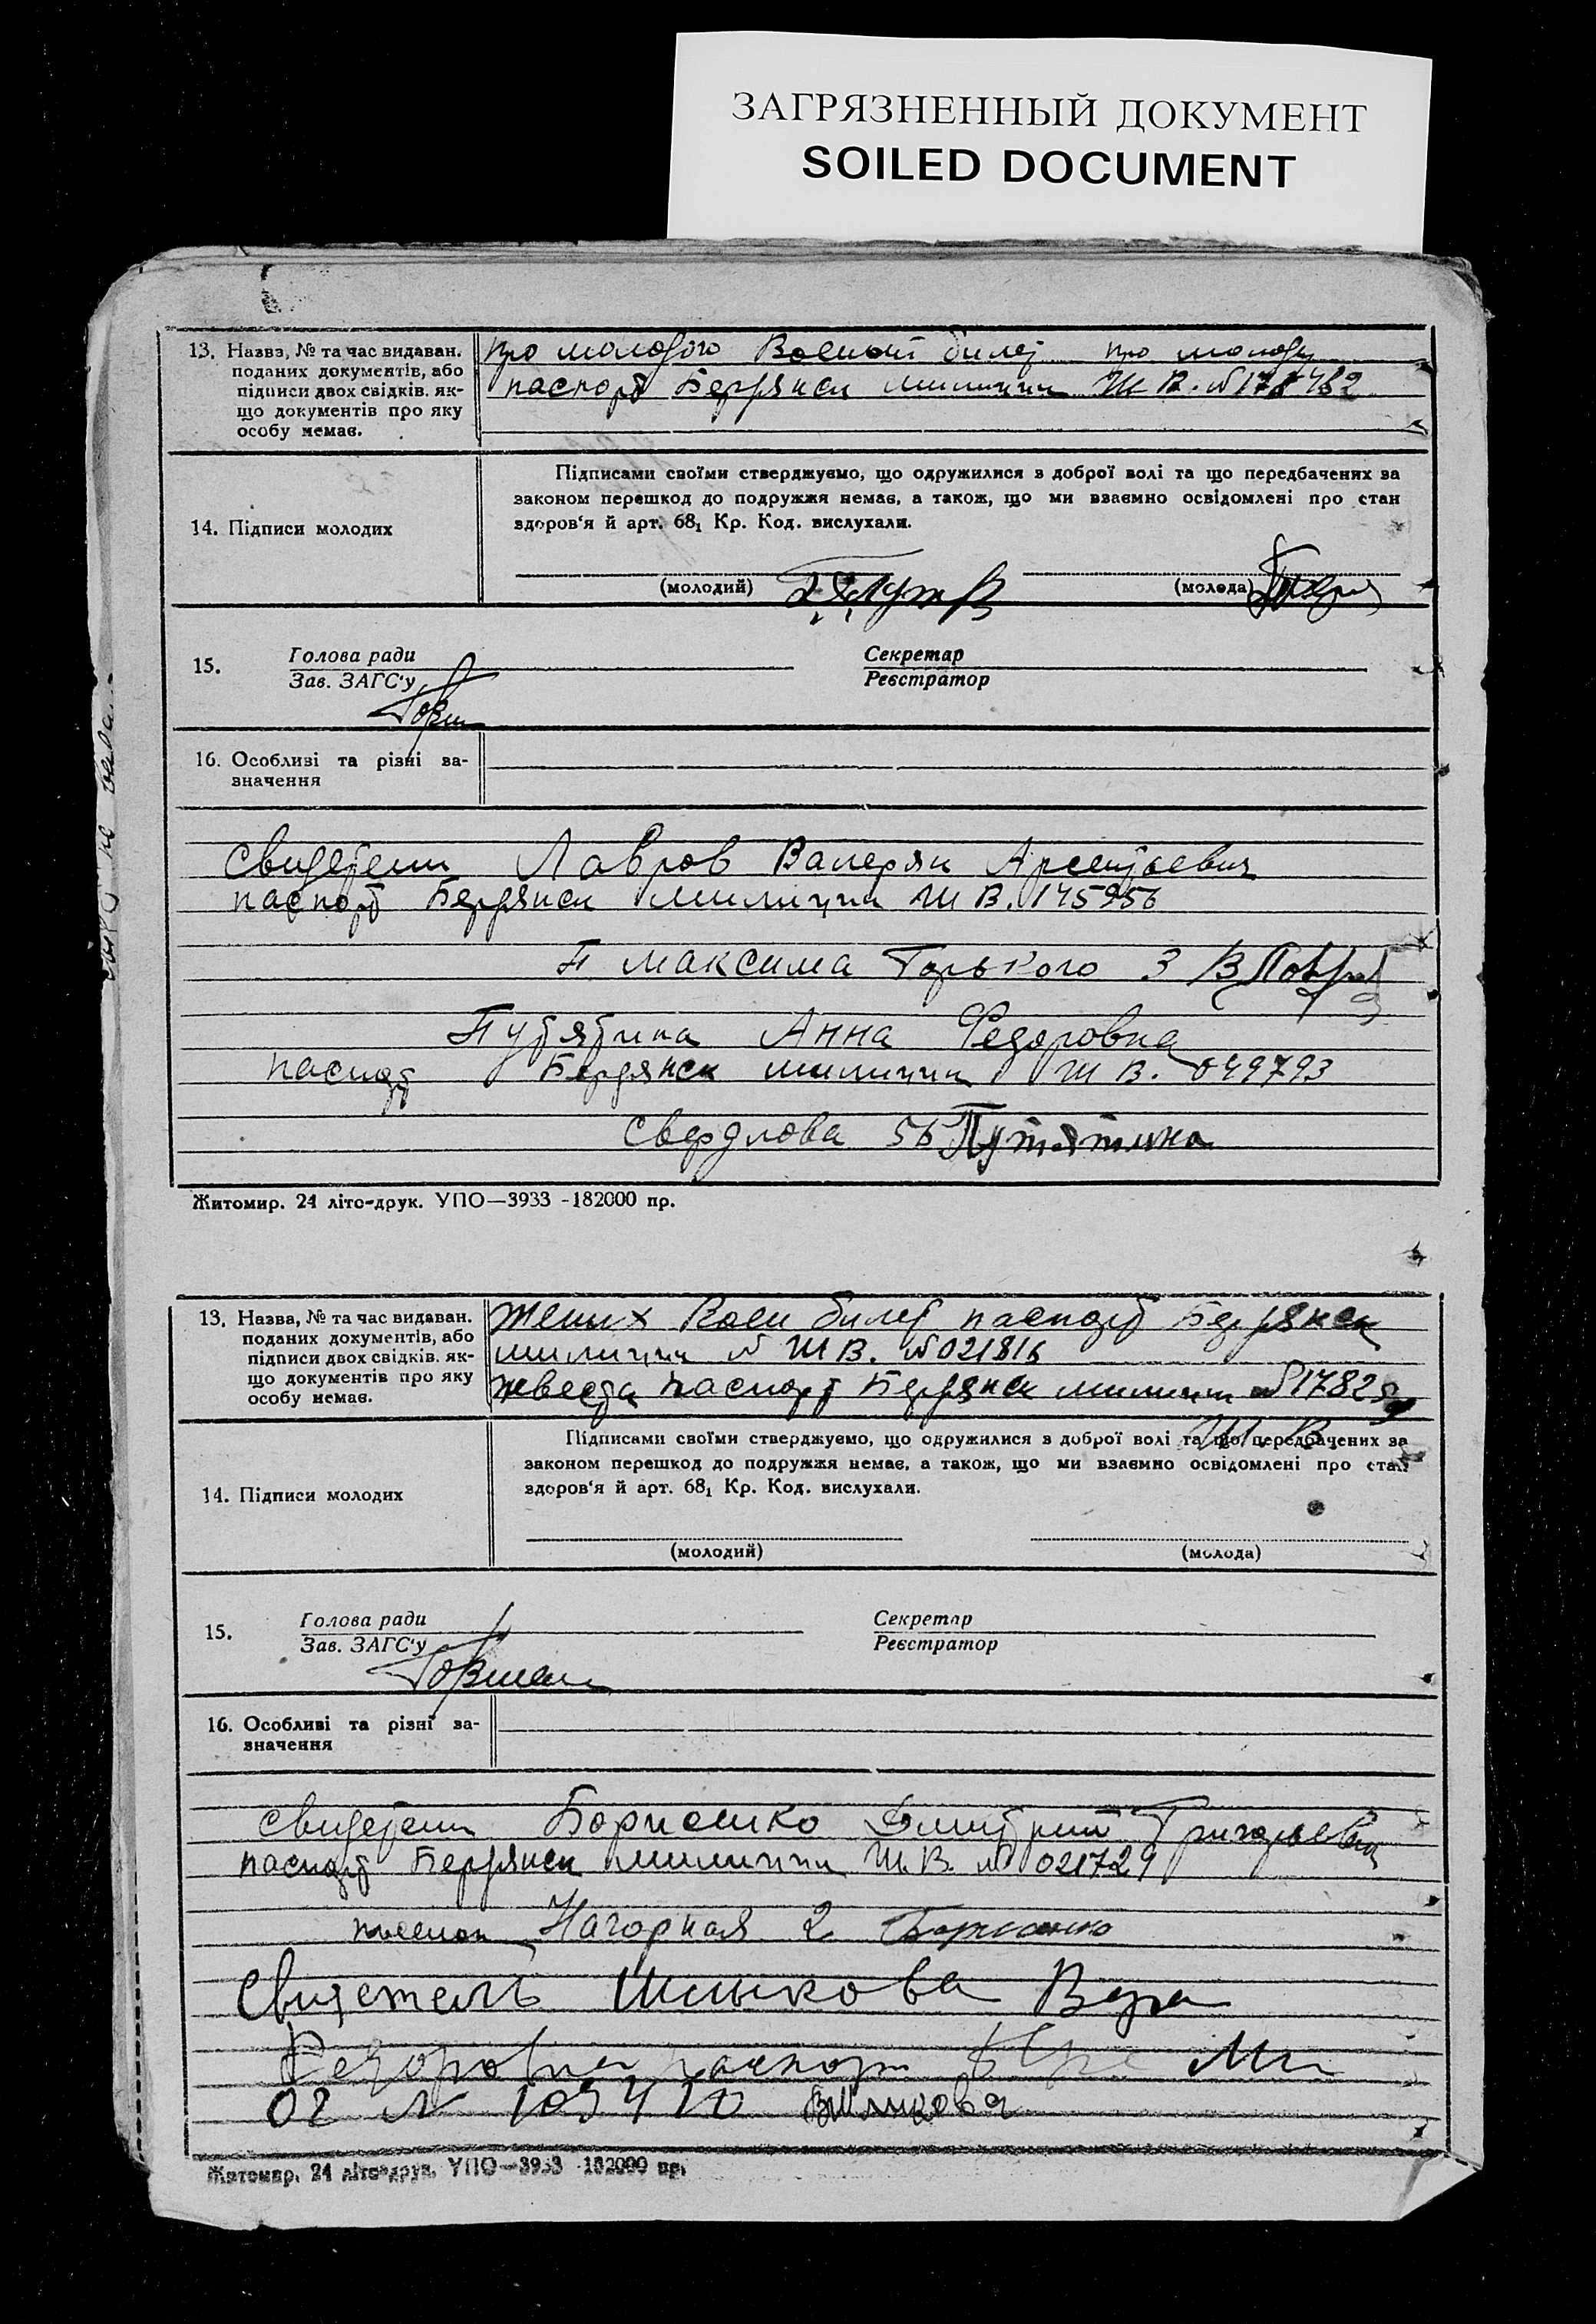 ЗАГРЯЗНЕННЫЙ ДОКУМЕНТ
SOILED DOCUMENT
13. Назва, № та час видаван.
поданих документів, або
підписи двох свідків. як-
що документів про яку
особу немає.
про молодого Военый билет про молоду
паспорт Бердянск милиции ШВ. №
14. Підписи молодих
Підписами своїми стверджуємо, що одружилися з доброї волі та що передбачених за
законом перешкод до подружжя немає, а також, що ми взаємно освідомлені про стан
здоров'я й арт. 68₁ Кр. Код. вислухали.
(молодий) (молода)
15. Голова ради Секретар
Зав. ЗАГС'у Реєстратор
16. Особливі та різні за-
значення
свидетели Лавров Валерян Арсентьевич
паспорт Бердянск милиции ШВ. 145956
П Максима Горького 3
Путятина Анна Федоровна
паспорт Бердянск милиции ШВ. 049793
Свердлова 56 Путятина
Житомир. 24 літо-друк. УПО—3933 -182000 пр.
13. Назва, № та час видаван.
поданих документів, або
підписи двох свідків. як-
що документів про яку
особу немає.
жених Воен билет паспорт Бердянск
милиции № ШВ. №021816
невеста паспорт Бердянск милиции №
ШВ
14. Підписи молодих
Підписами своїми стверджуємо, що одружилися з доброї волі та що передбачених за
законом перешкод до подружжя немає, а також, що ми взаємно освідомлені про стан
здоров'я й арт. 68₁ Кр. Код. вислухали.
(молодий) (молода)
15. Голова ради Секретар
Зав. ЗАГС'у Реєстратор
16. Особливі та різні за-
значення
свидетели Борисенко Дмитрий Григорьевич
паспорт Бердянск милиции ШВ. № 021729
Нагорная 2 Борисенко
Свидетель Шлыкова Вера
Федоровна паспорт
02 № ВШлыкова
Житомир. 24 літо-друк. УПО—3933 -182000 пр.